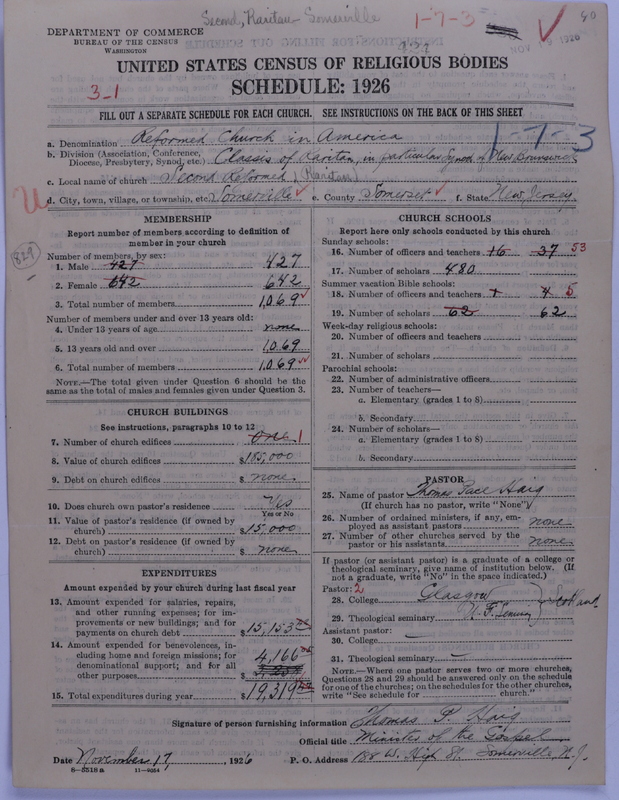 Second, Raritan - Somerville
1-7-3
60
427
NOV 19 1926
DEPARTMENT OF COMMERCE
BUREAU OF THE CENSUS
WASHINGTON
UNITED STATES CENSUS OF RELIGIOUS BODIES
SCHEDULE: 1926
3-1
FILL OUT A SEPARATE SCHEDULE FOR EACH CHURCH. SEE INSTRUCTIONS ON THE BACK OF THIS SHEET
1-7-3
a. Denomination Reformed Church in America
b. Division (Association, Conference, Diocese, Presbytery, Synod, etc.) Classis of Raritan, in particular Synod of New Brunswick
c. Local name of church Second Reformed (Raritan)
d. City, town, village, or township, etc. Somerville e. County Somerset f. State New Jersey
829
MEMBERSHIP
Report number of members according to definition of
member in your church
Number of members, by sex:
1. Male 427 427
2. Female 642 642
3. Total number of members 1,069
Number of members under and over 13 years old:
4. Under 13 years of age none
5. 13 years old and over 1,069
6. Total number of members 1,069
NOTE.—The total given under Question 6 should be the
same as the total of males and females given under Question 3.
CHURCH BUILDINGS
See instructions, paragraphs 10 to 12
7. Number of church edifices One 1
8. Value of church edifices $185,000
9. Debt on church edifices $ none
10. Does church own pastor's residence Yes
Yes or No
11. Value of pastor's residence (if owned by
church) $15,000
12. Debt on pastor's residence (if owned by
church) $ none
EXPENDITURES
Amount expended by your church during last fiscal year
13. Amount expended for salaries, repairs,
and other running expenses; for im-
provements or new buildings; and for
payments on church debt $15,153
14. Amount expended for benevolences, in-
cluding home and foreign missions; for
denominational support; and for all
other purposes $ 4,166
15. Total expenditures during year $19,319
CHURCH SCHOOLS
Report here only schools conducted by this church
Sunday schools:
16. Number of officers and teachers 16 37 53
17. Number of scholars 480
Summer vacation Bible schools:
18. Number of officers and teachers 1 4 5
19. Number of scholars 62 62
Week-day religious schools:
20. Number of officers and teachers
21. Number of scholars
Parochial schools:
22. Number of administrative officers
23. Number of teachers—
a. Elementary (grades 1 to 8)
b. Secondary
24. Number of scholars—
a. Elementary (grades 1 to 8)
b. Secondary
PASTOR
25. Name of pastor Thomas Pace Haig
(If church has no pastor, write "None")
26. Number of ordained ministers, if any, em-
ployed as assistant pastors none
27. Number of other churches served by the
pastor or his assistants none
If pastor (or assistant pastor) is a graduate of a college or
theological seminary, give name of institution below. (If
not a graduate, write "No" in the space indicated.)
Pastor: 2
28. College Glasgow
Scotland
29. Theological seminary U. F. Seminary
Assistant pastor:
30. College —
31. Theological seminary —
NOTE.—Where one pastor serves two or more churches,
Questions 28 and 29 should be answered only on the schedule
for one of the churches; on the schedules for the other churches,
write "See schedule for church."
Signature of person furnishing information Thomas P. Haig
Official title Minister of the Gospel
Date November 17, 1926 P. O. Address W. High St. Somerville, N. J.
8-5518a 11-9054